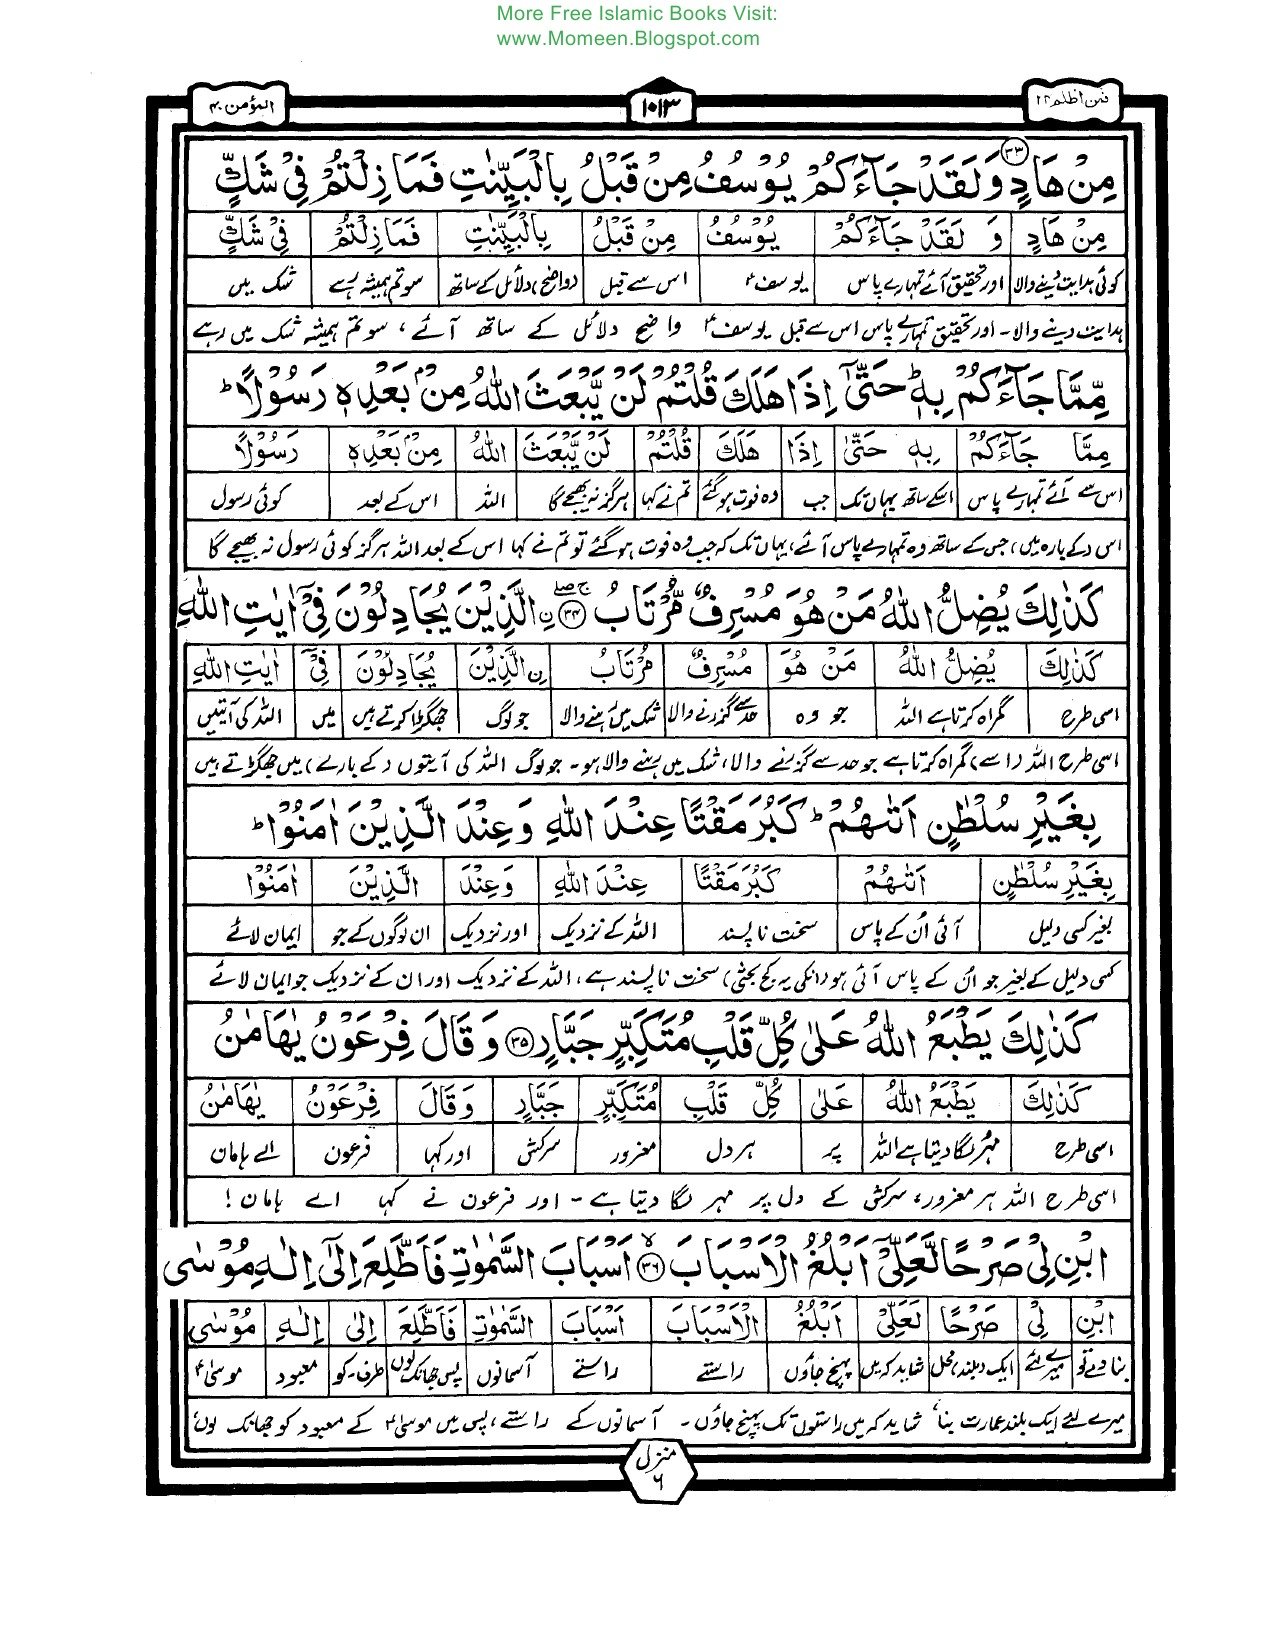 More Free Islamic Books Visit:
www.Momeen.Blogspot.com
فمن اظلم ۲۴ ۱۰۱۳ المؤمن ۴۰
مِنْ هَادٍ ۳۳ وَلَقَدْ جَآءَكُمْ يُوْسُفُ مِنْ قَبْلُ بِالْبَيِّنٰتِ فَمَا زِلْتُمْ فِيْ شَكٍّ
مِنْ هَادٍ وَ لَقَدْ جَآءَكُمْ يُوْسُفُ مِنْ قَبْلُ بِالْبَيِّنٰتِ فَمَا زِلْتُمْ فِيْ شَكٍّ
کوئی ہدایت دینے والا اور تحقیق آئے تمہارے پاس یوسفؑ اس سے قبل (واضح) دلائل کے ساتھ سو تم ہمیشہ رہے شک میں
ہدایت دینے والا۔ اور تحقیق تمہارے پاس اس سے قبل یوسفؑ واضح دلائل کے ساتھ آئے، سو تم ہمیشہ شک میں رہے
مِّمَّا جَآءَكُمْ بِهٖ ؕ حَتّٰىٓ اِذَا هَلَكَ قُلْتُمْ لَنْ يَّبْعَثَ اللّٰهُ مِنْۢ بَعْدِهٖ رَسُوْلًا ؕ
مِمَّا جَآءَكُمْ بِهٖ حَتّٰى اِذَا هَلَكَ قُلْتُمْ لَنْ يَّبْعَثَ اللّٰهُ مِنْۢ بَعْدِهٖ رَسُوْلًا
اس سے آئے تمہارے پاس اسکے ساتھ یہاں تک جب وہ فوت ہوگئے تم نے کہا ہرگز نہ بھیجے گا اللہ اس کے بعد کوئی رسول
اس (کے بارہ میں) جس کے ساتھ وہ تمہارے پاس آئے، یہاں تک کہ جب وہ فوت ہو گئے تو تم نے کہا اس کے بعد اللہ ہرگز کوئی رسول نہ بھیجے گا
كَذٰلِكَ يُضِلُّ اللّٰهُ مَنْ هُوَ مُسْرِفٌ مُّرْتَابُ ۳۴ ۨالَّذِيْنَ يُجَادِلُوْنَ فِيْٓ اٰيٰتِ اللّٰهِ
كَذٰلِكَ يُضِلُّ اللّٰهُ مَنْ هُوَ مُسْرِفٌ مُرْتَابُ ۨالَّذِيْنَ يُجَادِلُوْنَ فِيْٓ اٰيٰتِ اللّٰهِ
اسی طرح گمراہ کرتا ہے اللہ جو وہ حد سے گزرنے والا شک میں رہنے والا جو لوگ جھگڑا کرتے ہیں میں اللہ کی آیتیں
اسی طرح اللہ (اسے) گمراہ کرتا ہے جو حد سے گزرنے والا، شک میں رہنے والا ہو۔ جو لوگ اللہ کی آیتوں (کے بارے) میں جھگڑتے ہیں
بِغَيْرِ سُلْطٰنٍ اَتٰىهُمْ ؕ كَبُرَ مَقْتًا عِنْدَ اللّٰهِ وَعِنْدَ الَّذِيْنَ اٰمَنُوْا ؕ
بِغَيْرِ سُلْطٰنٍ اَتٰىهُمْ كَبُرَ مَقْتًا عِنْدَ اللّٰهِ وَعِنْدَ الَّذِيْنَ اٰمَنُوْا
بغیر کسی دلیل آئی اُن کے پاس سخت نا پسند اللہ کے نزدیک اور نزدیک ان لوگوں کے جو ایمان لائے
کسی دلیل کے بغیر جو اُن کے پاس آئی ہو (انکی یہ کج بحثی) سخت ناپسند ہے، اللہ کے نزدیک اور ان کے نزدیک جو ایمان لائے
كَذٰلِكَ يَطْبَعُ اللّٰهُ عَلٰى كُلِّ قَلْبِ مُتَكَبِّرٍ جَبَّارٍ ۳۵ وَقَالَ فِرْعَوْنُ يٰهَامٰنُ
كَذٰلِكَ يَطْبَعُ اللّٰهُ عَلٰى كُلِّ قَلْبِ مُتَكَبِّرٍ جَبَّارٍ وَقَالَ فِرْعَوْنُ يٰهَامٰنُ
اسی طرح مہر لگا دیتا ہے اللہ پر ہر دل مغرور سرکش اور کہا فرعون اے ہامان
اسی طرح اللہ ہر مغرور، سرکش کے دل پر مہر لگا دیتا ہے۔ اور فرعون نے کہا اے ہامان!
ابْنِ لِيْ صَرْحًا لَّعَلِّيْٓ اَبْلُغُ الْاَسْبَابَ ۳۶ اَسْبَابَ السَّمٰوٰتِ فَاَطَّلِعَ اِلٰٓى اِلٰهِ مُوْسٰى
ابْنِ لِيْ صَرْحًا لَعَلِّيْٓ اَبْلُغُ الْاَسْبَابَ اَسْبَابَ السَّمٰوٰتِ فَاَطَّلِعَ اِلٰى اِلٰهِ مُوْسٰى
بنا دے تو میرے لئے ایک (بلند) محل شاید کہ میں پہنچ جاؤں راستے راستے آسمانوں پس جھانک لوں طرف۔کو معبود موسیٰؑ
میرے لئے ایک بلند عمارت بنا، شاید کہ میں راستوں تک پہنچ جاؤں۔ آسمانوں کے راستے، پس میں موسیٰؑ کے معبود کو جھانک لوں
منزل ۶